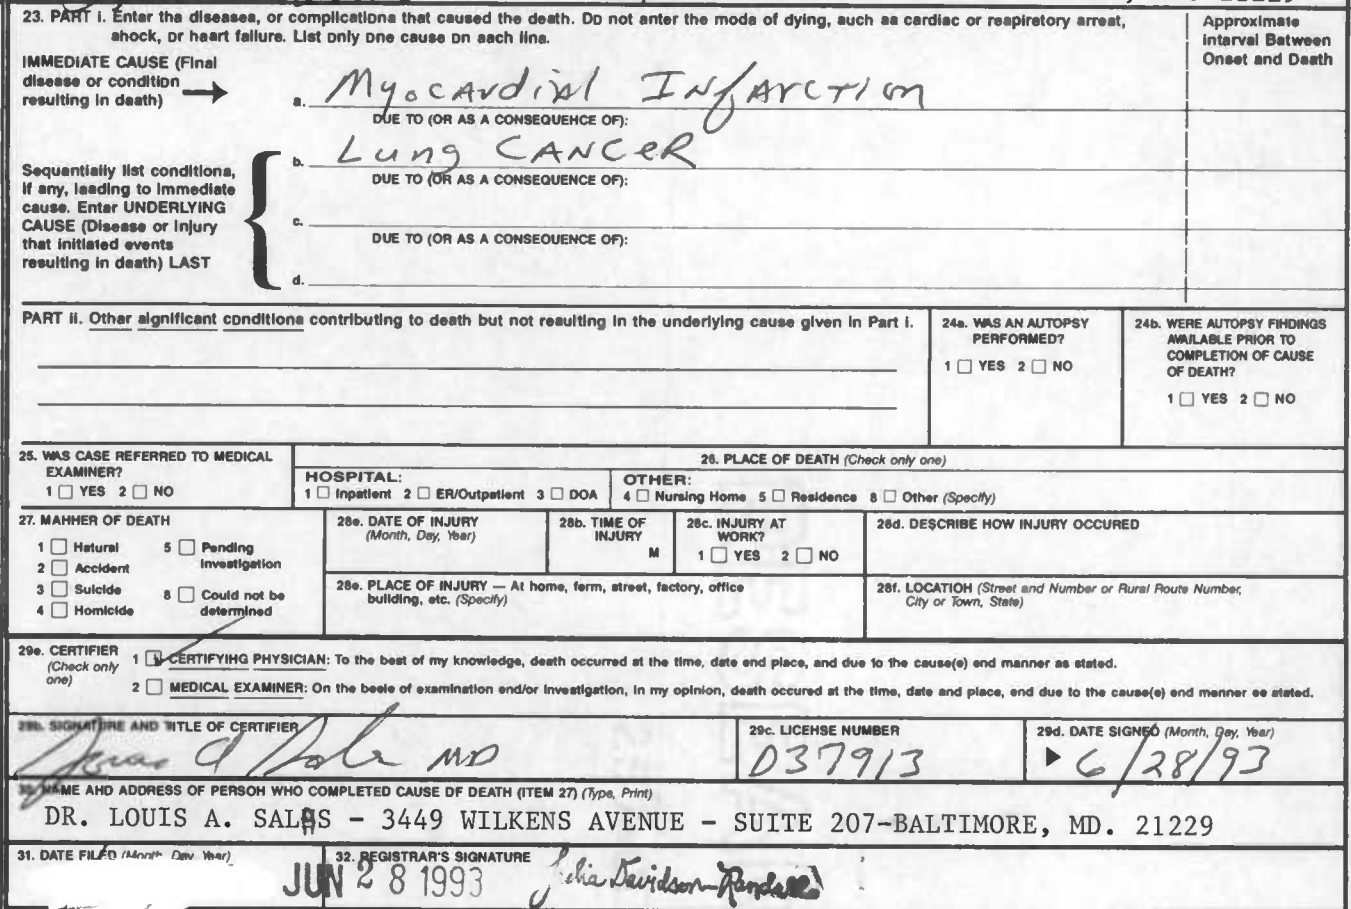 23. PART I. Enter the diseases, or complications that caused the death. Do not enter the mode of dying, such as cardiac or respiratory arrest,
shock, or heart failure. List only one cause on each line.
Approximate
Interval Between
Onset and Death
IMMEDIATE CAUSE (Final
disease or condition
resulting in death)
a. Myocardial Infarction
DUE TO (OR AS A CONSEQUENCE OF):
b. Lung CANCER
DUE TO (OR AS A CONSEQUENCE OF):
Sequentially list conditions,
if any, leading to immediate
cause. Enter UNDERLYING
CAUSE (Disease or injury
that initiated events
resulting in death) LAST
c.
DUE TO (OR AS A CONSEQUENCE OF):
d.
PART II. Other significant conditions contributing to death but not resulting in the underlying cause given in Part I.
24a. WAS AN AUTOPSY
PERFORMED?
1 YES 2 NO
24b. WERE AUTOPSY FINDINGS
AVAILABLE PRIOR TO
COMPLETION OF CAUSE
OF DEATH?
1 YES 2 NO
25. WAS CASE REFERRED TO MEDICAL
EXAMINER?
1 YES 2 NO
26. PLACE OF DEATH (Check only one)
HOSPITAL:
1 Inpatient 2 ER/Outpatient 3 DOA
OTHER:
4 Nursing Home 5 Residence 6 Other (Specify)
27. MANNER OF DEATH
1 Natural 5 Pending
Investigation
2 Accident
3 Suicide 6 Could not be
determined
4 Homicide
28a. DATE OF INJURY
(Month, Day, Year)
28b. TIME OF
INJURY
M
28c. INJURY AT
WORK?
1 YES 2 NO
28d. DESCRIBE HOW INJURY OCCURED
28e. PLACE OF INJURY — At home, farm, street, factory, office
building, etc. (Specify)
28f. LOCATION (Street and Number or Rural Route Number,
City or Town, State)
29a. CERTIFIER
(Check only
one)
1 CERTIFYING PHYSICIAN: To the best of my knowledge, death occurred at the time, date and place, and due to the cause(s) and manner as stated.
2 MEDICAL EXAMINER: On the basis of examination and/or investigation, in my opinion, death occured at the time, date and place, and due to the cause(s) and manner as stated.
29b. SIGNATURE AND TITLE OF CERTIFIER
MD
29c. LICENSE NUMBER
D37913
29d. DATE SIGNED (Month, Day, Year)
6/28/93
30. NAME AND ADDRESS OF PERSON WHO COMPLETED CAUSE OF DEATH (ITEM 27) (Type, Print)
DR. LOUIS A. SALAS - 3449 WILKENS AVENUE - SUITE 207-BALTIMORE, MD. 21229
31. DATE FILED (Month, Day, Year)
JUN 28 1993
32. REGISTRAR'S SIGNATURE
Julia Davidson-Randall